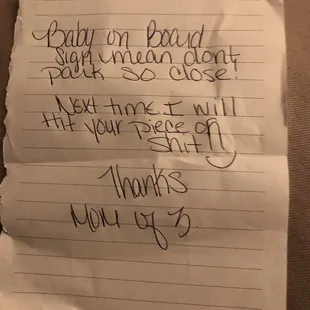 Baby on Board
sign mean dont
park so close!
Next time I will
Hit your piece of
shit!!
Thanks
Mom of 3